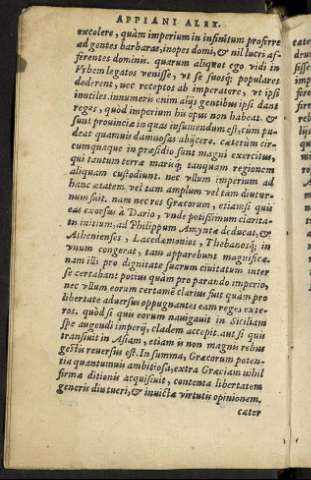 APPIANI ALEX.
excolere, quàm imperium in infinitum proferre
ad gentes barbaras, inopes domi, & nil lucri af-
ferentes dominis. quarum aliquot ego vidi in
Vrbem legatos venisse, vt se suosq; populares
dederent, nec receptos ab imperatore, vt ipsi
inutiles. innumeris enim alijs gentibus ipsi dant
reges, quòd imperium his opus non habeat. &
sunt prouinciæ in quas insumendum est, tum pu-
deat quamuis damnosas abijcere. cæterùm cir-
cumquaque in præsidio sunt magni exercitus,
qui tantum terra mariq; tanquam regionem
aliquam custodiunt. nec vllum imperium ad
hanc ætatem vel tam amplum vel tam diutur-
num fuit. nam nec res Græcorum, etiamsi quis
eas exorsus à Dario, vnde potissimum clarita-
tis initium, ad Philippum Amyntæ deducat, &
Athenienses, Lacedæmonios, Thebanosq; in
vnum congerat, tam apparebunt magnificæ.
nam illi pro dignitate suarum ciuitatum inter
se certabant potius quàm pro parando imperio,
nec vllum eorum certamē clarius fuit quàm pro
libertate aduersus oppugnantes eam reges exte-
ros. quòd si quis eorum nauigauit in Siciliam
spe augendi imperij, cladem accepit. aut si quis
transiuit in Asiam, etiam is non magnis rebus
gestis reuersus est. In summa, Græcorum poten-
tia quantumuis ambitiosa, extra Græciam nihil
firmæ ditionis acquisiuit, contenta libertatem
generis diu tueri, & inuictæ virtutis opinionem.
cæter